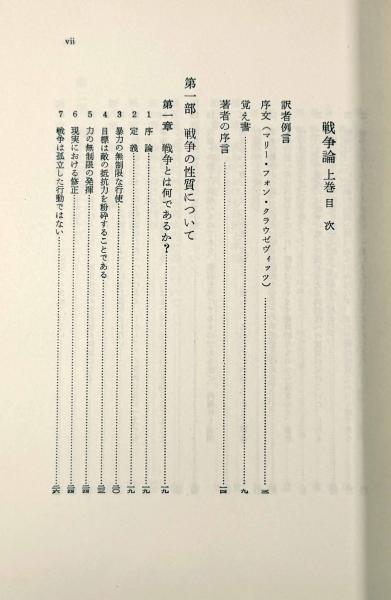 vii
戦争論 上巻 目次
訳者例言
序文(マリー・フォン・クラウゼヴィッツ)……三
覚え書……九
著者の序言……一四
第一部 戦争の性質について
第一章 戦争とは何であるか?……一九
1 序論……一九
2 定義……一九
3 暴力の無制限な行使……二〇
4 目標は敵の抵抗力を粉砕することである……二三
5 力の無制限の発揮……二四
6 現実における修正……二四
7 戦争は孤立した行動ではない……二六